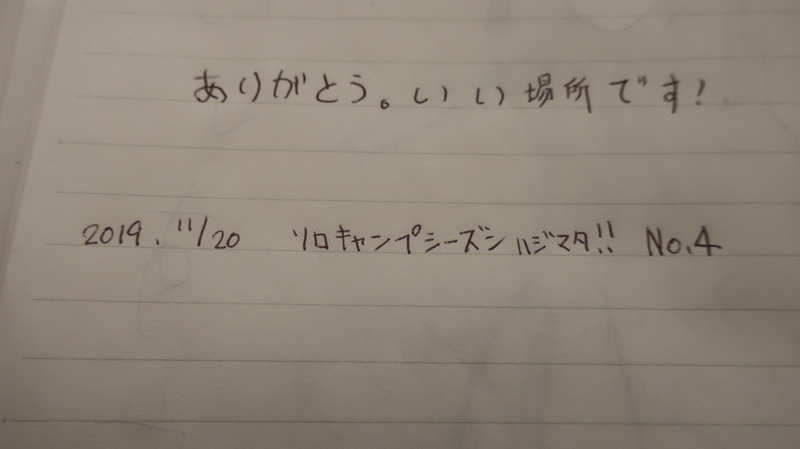 ありがとう。いい場所です!
2019. 11/20 ソロキャンプシーズンハジマタ!! No.4